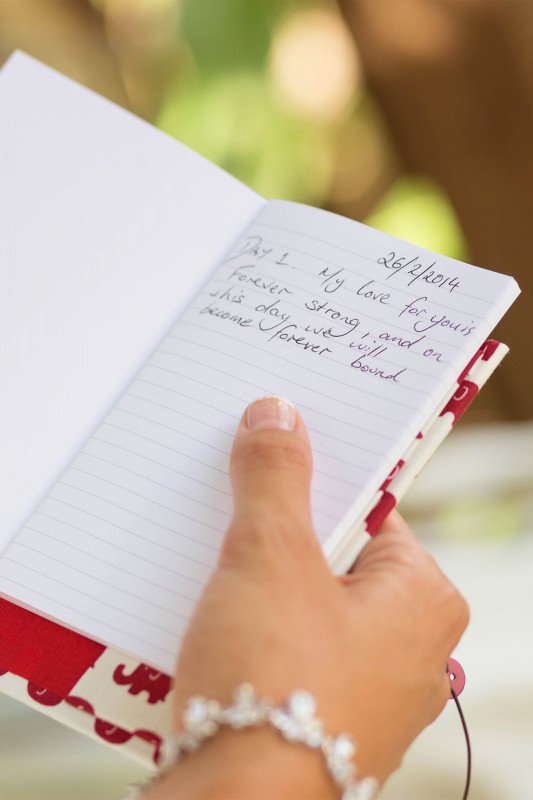 26/2/2014
Day 1. My love for you is
Forever strong, and on
this day we will
become forever bound